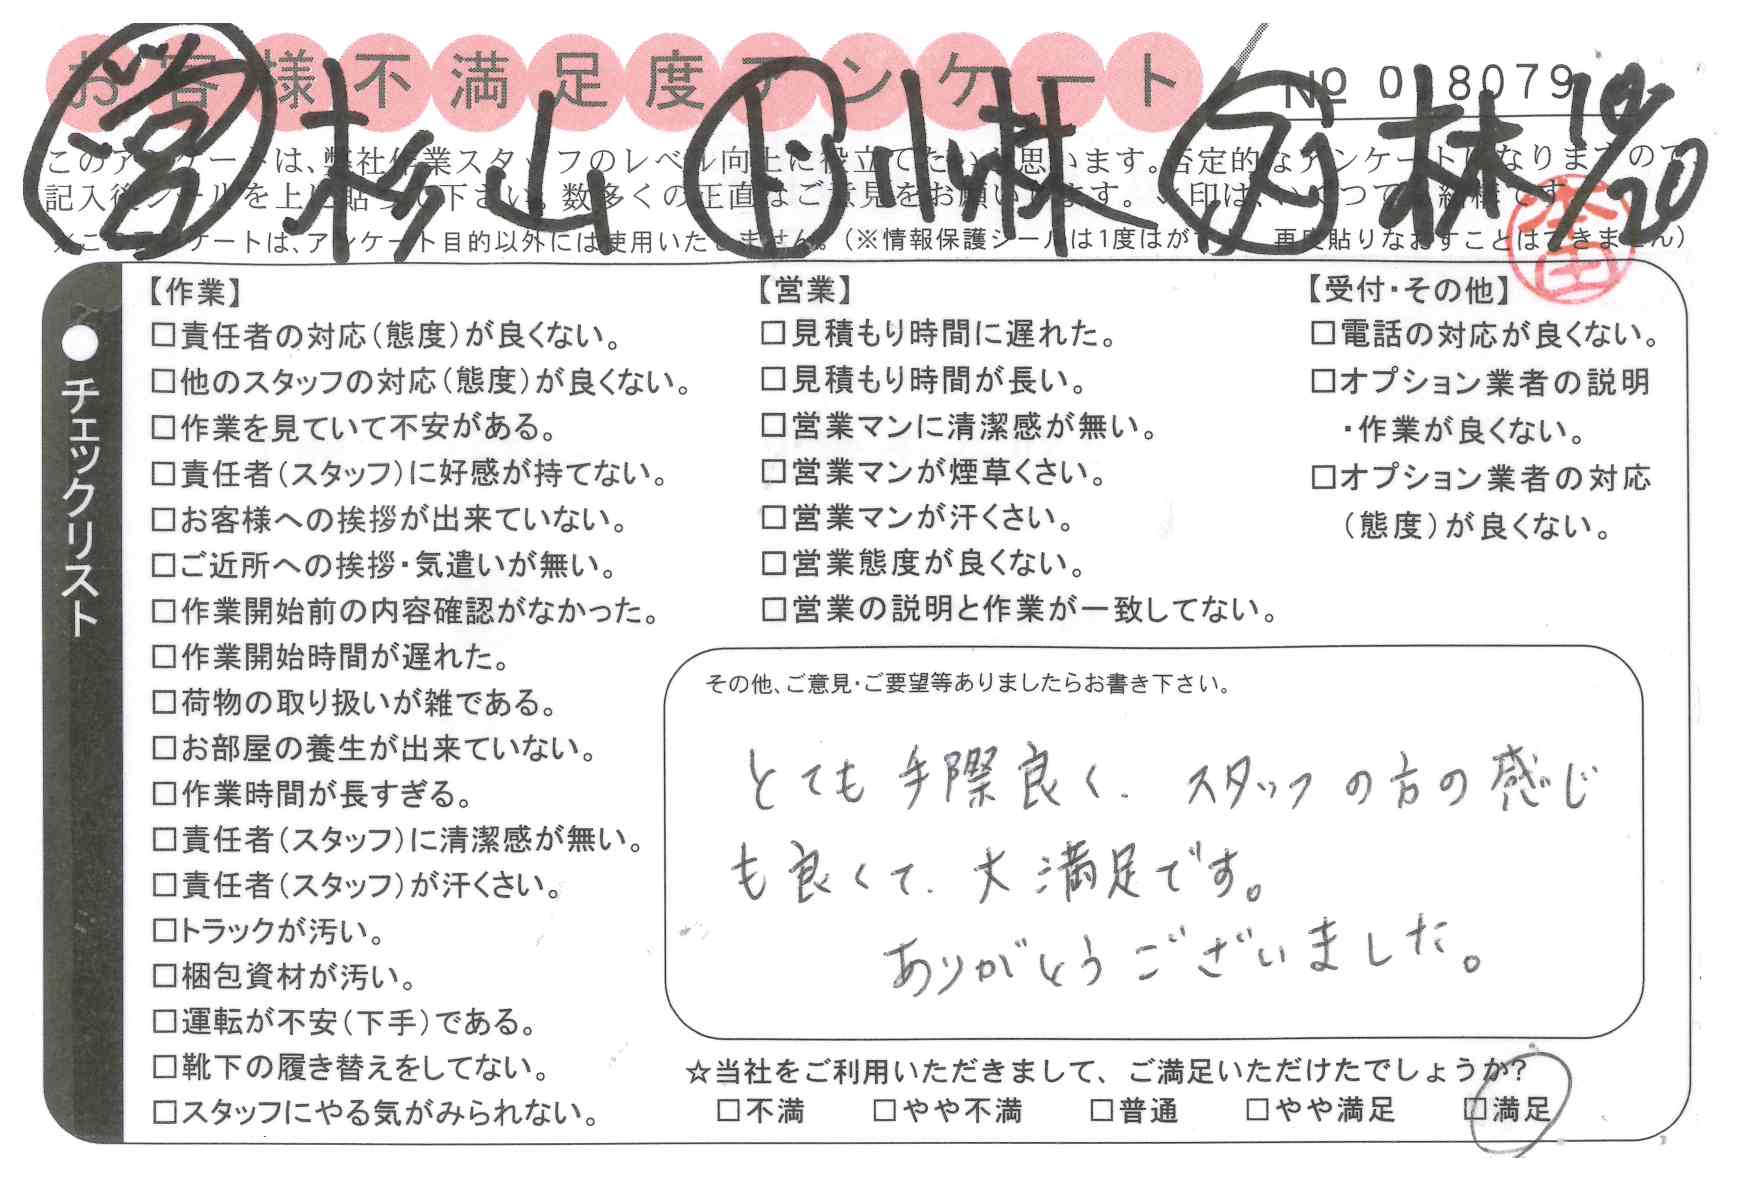 お客様不満足度アンケート
№ 018079
営 杉山 小林 林 10/20
このアンケートは、弊社作業スタッフのレベル向上に役立てたいと思います。否定的なアンケートになりますので
記入後シールを上に貼って下さい。数多くの正直なご意見をお願いします。✓印は、いくつでも結構です。
※このアンケートは、アンケート目的以外には使用いたしません。(※情報保護シールは1度はがすと、再度貼りなおすことはできません)
チェックリスト
【作業】
□責任者の対応(態度)が良くない。
□他のスタッフの対応(態度)が良くない。
□作業を見ていて不安がある。
□責任者(スタッフ)に好感が持てない。
□お客様への挨拶が出来ていない。
□ご近所への挨拶・気遣いが無い。
□作業開始前の内容確認がなかった。
□作業開始時間が遅れた。
□荷物の取り扱いが雑である。
□お部屋の養生が出来ていない。
□作業時間が長すぎる。
□責任者(スタッフ)に清潔感が無い。
□責任者(スタッフ)が汗くさい。
□トラックが汚い。
□梱包資材が汚い。
□運転が不安(下手)である。
□靴下の履き替えをしてない。
□スタッフにやる気がみられない。
【営業】
□見積もり時間に遅れた。
□見積もり時間が長い。
□営業マンに清潔感が無い。
□営業マンが煙草くさい。
□営業マンが汗くさい。
□営業態度が良くない。
□営業の説明と作業が一致してない。
【受付・その他】
□電話の対応が良くない。
□オプション業者の説明
・作業が良くない。
□オプション業者の対応
(態度)が良くない。
その他、ご意見・ご要望等ありましたらお書き下さい。
とても手際良く、スタッフの方の感じ
も良くて、大満足です。
ありがとうございました。
☆当社をご利用いただきまして、ご満足いただけたでしょうか?
□不満 □やや不満 □普通 □やや満足 □満足